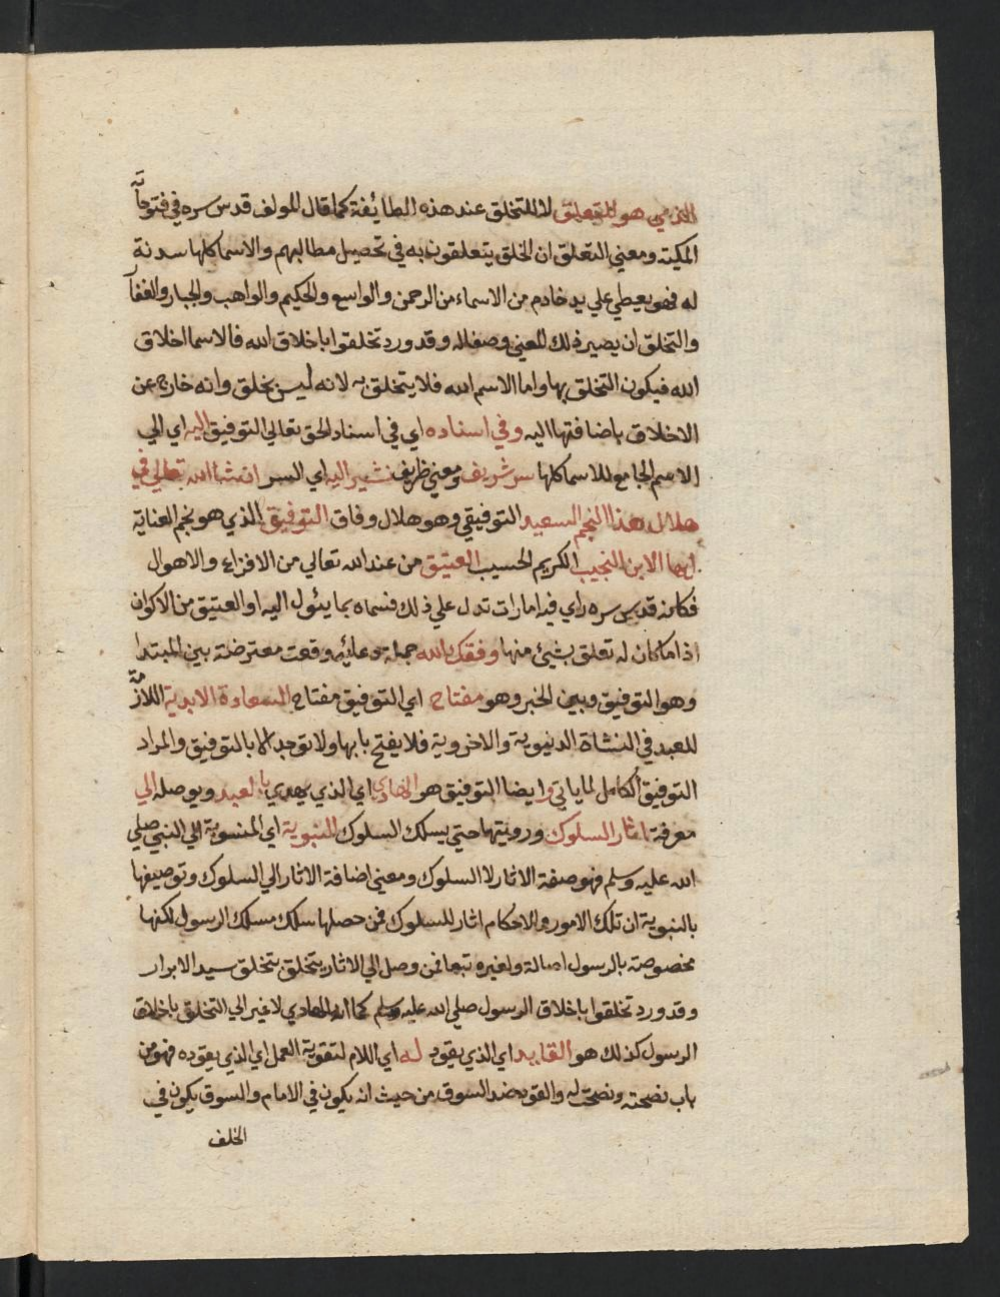 الذي هو للتعلق لا للتخلق عند هذه الطائفة كما قال المولف قدس سره في فتوحاته
المكية ومعني التعلق ان الخلق يتعلقون به في تحصيل مطالبهم والاسما كلها سدنة
له فهو يعطي علي يد خادم من الاسماء من الرحمن والواسع والحكيم والواهب والجبار والغفار
والتخلق ان يصير ذلك المعني وصفا له وقد ورد تخلقوا باخلاق الله فالاسما اخلاق
الله فيكون التخلق بها واما الاسم الله فلا يتخلق به لانه ليس بخلق وانه خارج عن
الاخلاق باضافتها اليه وفي اسناده اي في اسناد الحق تعالي التوفيق اليه اي الي
الاسم الجامع للاسما كلها سر شريف ومعني ظريف نشير اليه اي السر انشا الله تعالي في
هلال هذا النجم السعيد التوفيقي وهو هلال وفاق التوفيق الذي هو نجم العناية
ايها الابن النجيب الكريم الحسيب العتيق من عند الله تعالي من الافزاع والاهوال
فكانه قدس سره راي فيه امارات تدل علي ذلك فسماه بما يئول اليه او العتيق من الاكوان
اذ ما كان له تعلق بشيئ منها وفقك الله جملة دعائيه وقعت معترضة بين المبتدا
وهو التوفيق وبين الخبر وهو مفتاح اي التوفيق مفتاح السعادة الابدية اللازمة
للعبد في النشاة الدنيوية والاخروية فلا يفتح بابها ولا توجد الا بالتوفيق والمراد
التوفيق الكامل لما ياتي وايضا التوفيق هو الهادي اي الذي يهدي بالعبد ويوصله الي
معرفة اثار السلوك ورويتها حتي يسلك السلوك النبوية اي المنسوبة الي النبي صلي
الله عليه وسلم فهو صفة الاثار لا السلوك ومعني اضافة الاثار الي السلوك وتوصيفها
بالنبوية ان تلك الامور والاحكام اثار للسلوك فمن حصلها سلك مسلك الرسول لكنها
مخصوصة بالرسول اصالة ولغيره تبعا فمن وصل الي الاثار يتخلق بتخلق سيد الابرار
وقد ورد تخلقوا باخلاق الرسول صلي الله عليه وسلم كما انه الهادي لا غير الي التخلق باخلاق
الرسول كذلك هو القايد اي الذي يقود له اي اللام لتقوية العمل اي الذي يقوده فهو من
باب نصحته ونصحت له والقود ضد السوق من حيث انه يكون في الامام والسوق يكون في
الخلف